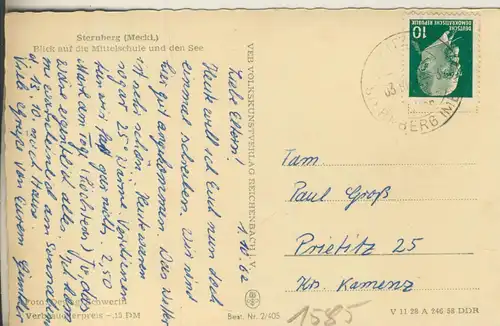 Sternberg (Meckl.)
Blick auf die Mittelschule und den See
1. 10. 62
Liebe Eltern!
Heute will ich Euch nun doch
einmal schreiben. Wir sind
hier gut angekommen. Das Wetter
ist sehr schön. Heute waren
sogar 25° Wärme. Verdienen
tun wir gar nicht. 2,50
Mark am Tag
alles.
am Sonnabend
d. 13. 10. nach Haus.
Viele Grüße von Eurem Günther
VEB VOLKSKUNSTVERLAG REICHENBACH i. V.
10
DEUTSCHE
DEMOKRATISCHE REPUBLIK
STERNBERG
Fam.
Paul Groß
Prietitz 25
Kr. Kamenz
1585
Foto: Schwerin
Verbraucherpreis -,15 DM
Best. Nr. 2/405
V 11 28 A 246 58 DDR